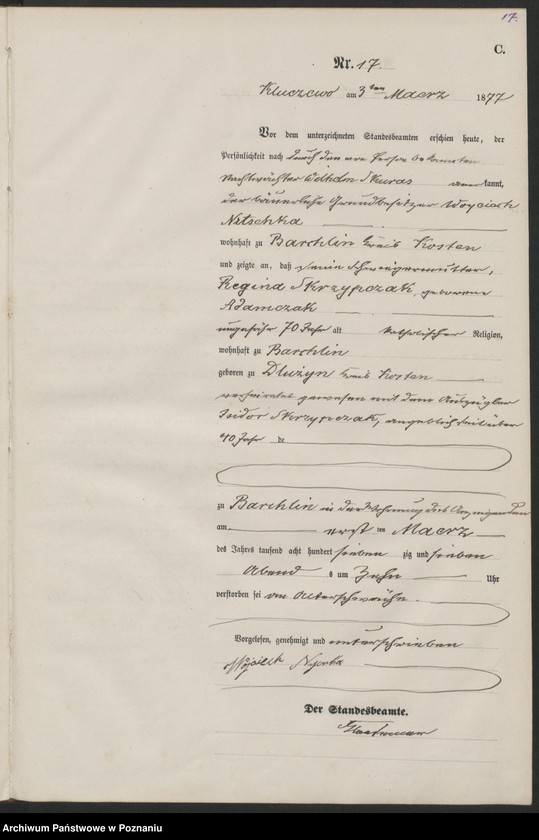 17.
C.
Nr. 17.
Kluczewo am 3ten Maerz 1877
Vor dem unterzeichneten Standesbeamten erschien heute, der
Persönlichkeit nach durch den von Person bekannten
Nachtwächter Wilhelm Skuras anerkannt,
der bäuerliche Grundbesitzer Woyciech
Nitschka
wohnhaft zu Barchlin Kreis Kosten
und zeigte an, daß seine Schwiegermutter,
Regina Skrzypczak, geborene
Adamczak
ungefähr 70 Jahr alt katholischer Religion,
wohnhaft zu Barchlin
geboren zu Dluzyn Kreis Kosten
verheirathet gewesen mit dem Auszügler
Isidor Skrzypczak, angeblich seit über
40 Jahr de
zu Barchlin in der Wohnung des Anzeigenden
am ersten Maerz
des Jahres tausend acht hundert sieben zig und sieben
Abend s um Zehn Uhr
verstorben sei an Altersschwäche.
Vorgelesen, genehmigt und unterschrieben
Der Standesbeamte.
Archiwum Państwowe w Poznaniu